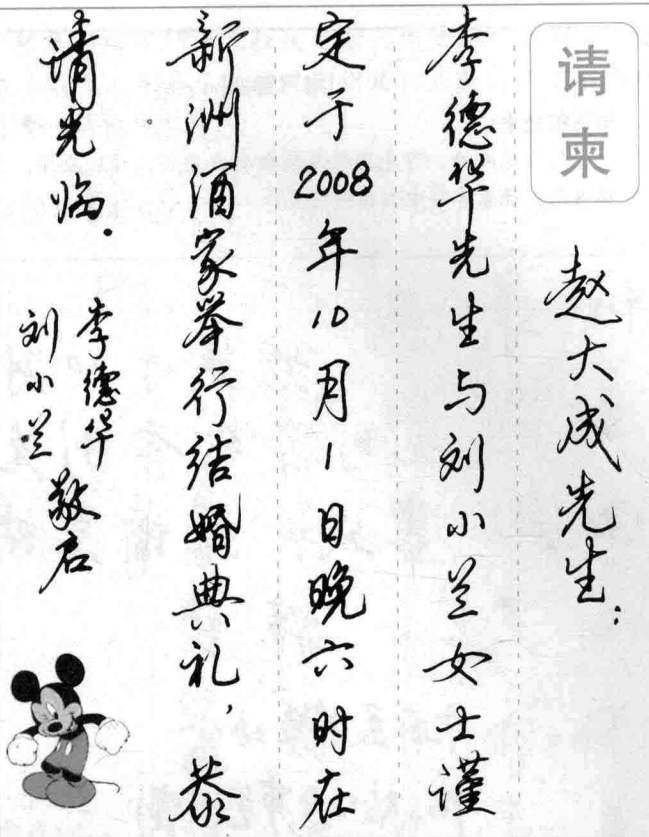 请柬
赵大成先生：
李德华先生与刘小兰女士谨
定于2008年10月1日晚六时在
新洲酒家举行结婚典礼，恭
请光临。
李德华
刘小兰 敬启